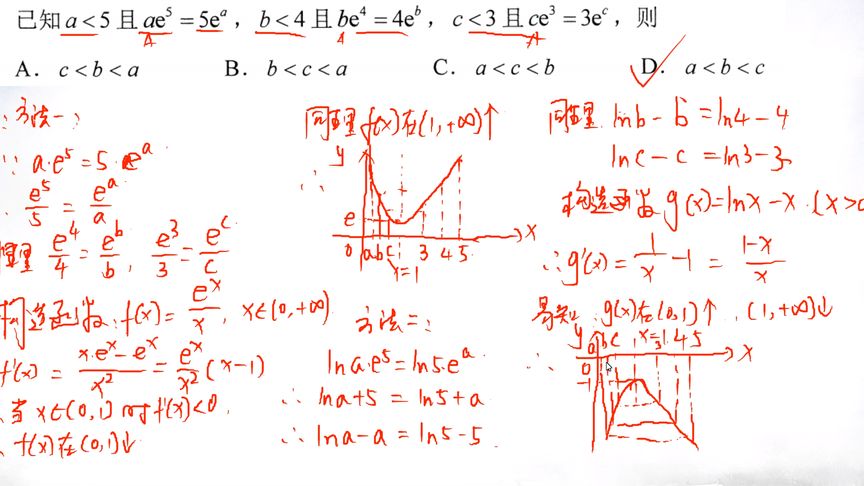 已知 a<5 且 ae⁵=5eᵃ，b<4 且 be⁴=4eᵇ，c<3 且 ce³=3eᶜ，则
A． c<b<a B． b<c<a C． a<c<b D． a<b<c
方法一:
∵ a·e⁵=5·eᵃ
e⁵/5 = eᵃ/a
同理 e⁴/4 = eᵇ/b, e³/3 = eᶜ/c
构造函数: f(x)= eˣ/x, x∈(0,+∞)
f'(x) = (x·eˣ-eˣ)/x² = eˣ/x² (x-1)
当 x∈(0,1)时 f'(x)<0,
f(x)在(0,1)↓
同理 f(x)在(1,+∞)↑
∴
y
e
0 a b c 3 4 5 x
x=1
方法二:
ln a·e⁵=ln5·eᵃ
∴ lna+5 = ln5+a
∴ lna-a = ln5-5
同理 lnb-b=ln4-4
lnc-c=ln3-3
构造函数 g(x)=lnx-x (x>0
∴g'(x)= 1/x -1 = (1-x)/x
易知: g(x)在(0,1)↑, (1,+∞)↓
∴
y a b c x=1 3 4 5 x
0
-1